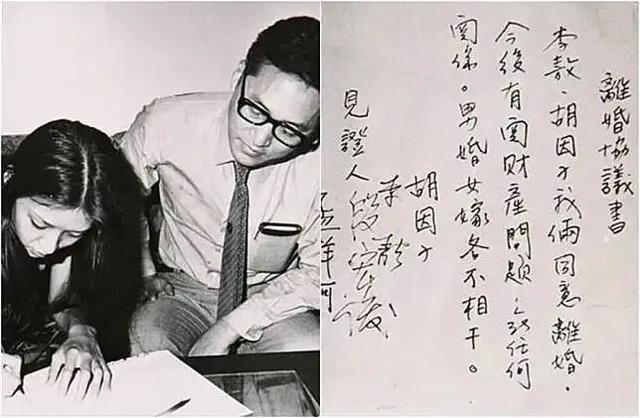 離婚協議書
李敖、胡因子我倆同意離婚。
今後有関財產問題任何
関係。男婚女嫁各不相干。
胡因子
李敖
見證人